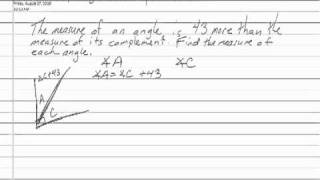 The measure of an angle is 43 more than the
measure of its complement. Find the measure of
each angle.
∡A ∡C
∡A = ∡C + 43
∡C+43
A
C